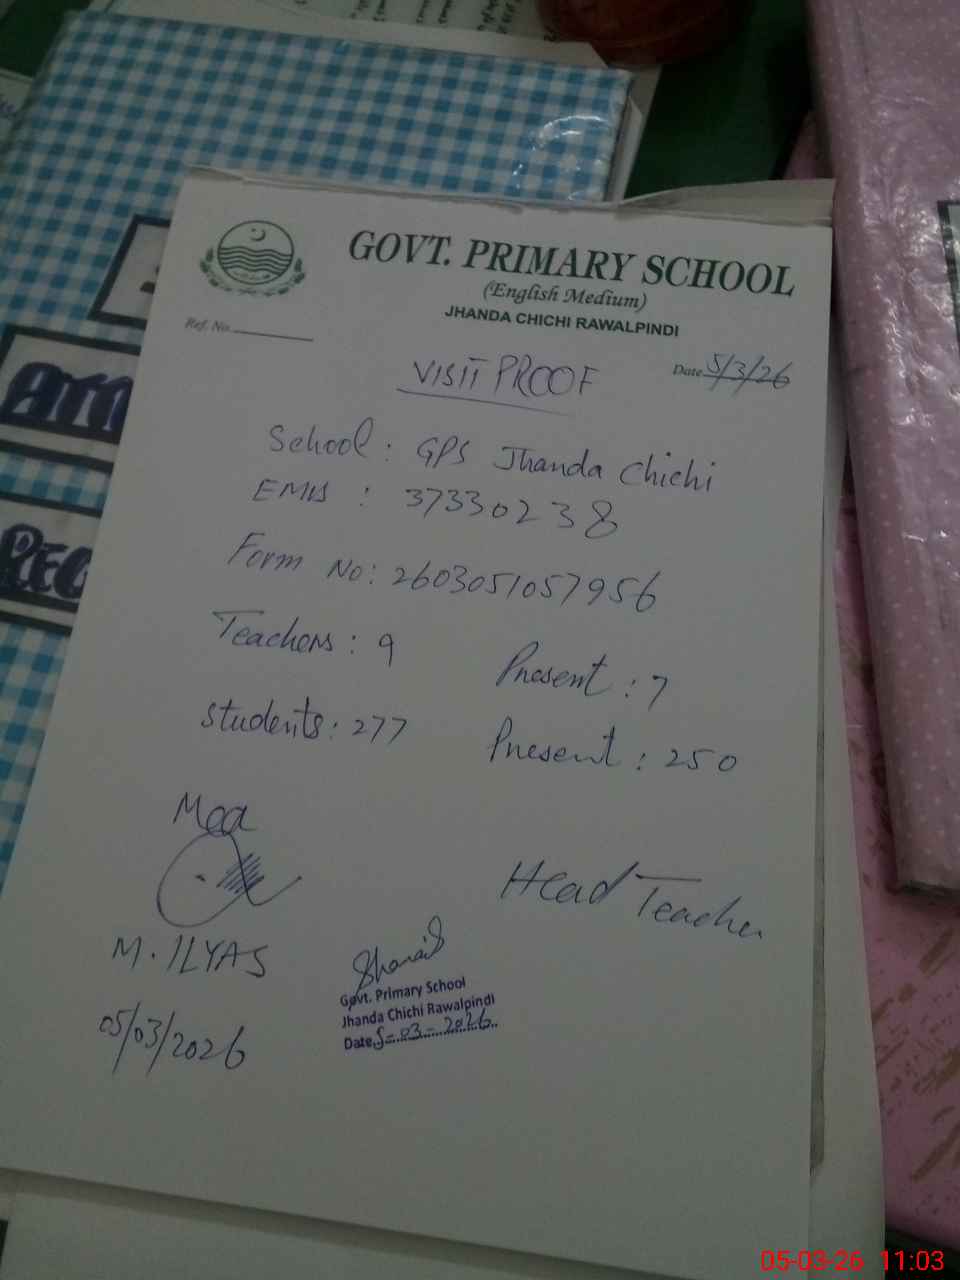 GOVT. PRIMARY SCHOOL
(English Medium)
JHANDA CHICHI RAWALPINDI
Ref. No.
Date 5/3/26
VISIT PROOF
School: GPS Jhanda Chichi
EMIS : 37330238
Form No: 2603051057956
Teachers: 9 Present: 7
Students: 277 Present: 250
Mea
Head Teacher
M. ILYAS
05/03/2026
Govt. Primary School
Jhanda Chichi Rawalpindi
Date 5-03-2026
05-03-26 11:03